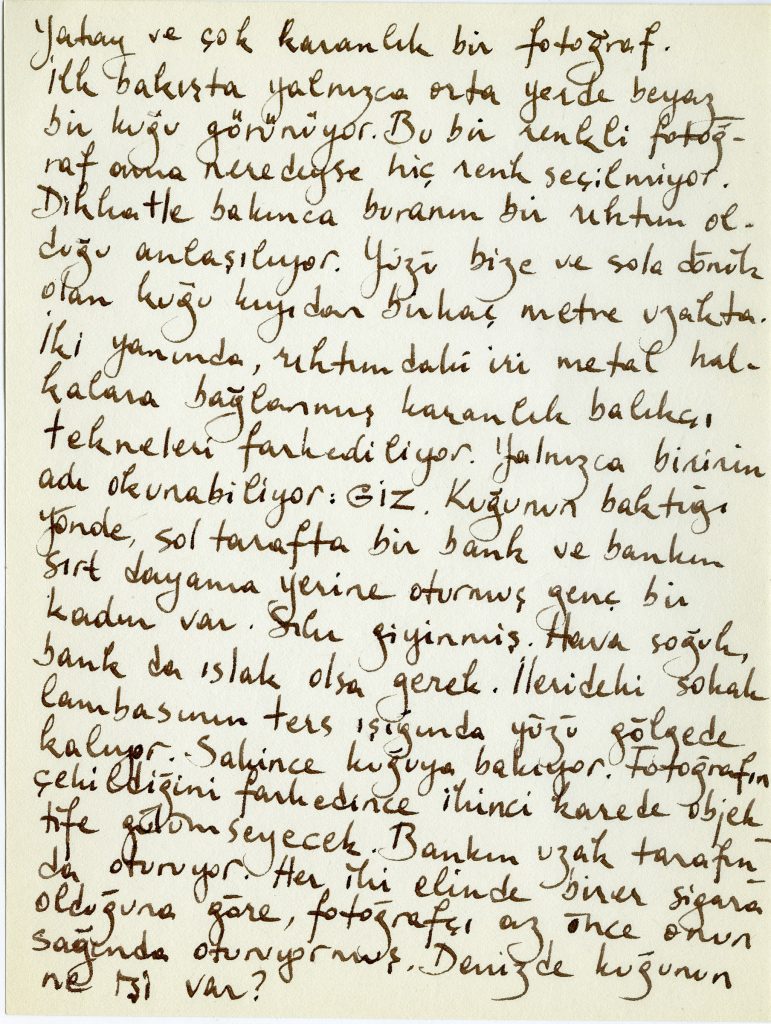 Yatay ve çok karanlık bir fotoğraf.
İlk bakışta yalnızca orta yerde beyaz
bir kuğu görünüyor. Bu bir renkli fotoğ-
raf ama neredeyse hiç renk seçilmiyor.
Dikkatle bakınca buranın bir rıhtım ol-
duğu anlaşılıyor. Yüzü bize ve sola dönük
olan kuğu kıyıdan birkaç metre uzakta.
İki yanında, rıhtımdaki iri metal hal-
kalara bağlanmış karanlık balıkçı
tekneleri farkediliyor. Yalnızca birinin
adı okunabiliyor: GİZ. Kuğunun baktığı
yönde, sol tarafta bir bank ve bankın
sırt dayama yerine oturmuş genç bir
kadın var. Sıkı giyinmiş. Hava soğuk,
bank da ıslak olsa gerek. İlerideki sokak
lambasının ters ışığında yüzü gölgede
kalıyor. Sakince kuğuya bakıyor. Fotoğrafın
çekildiğini farkedince ikinci karede objek
tife gülümseyecek. Bankın uzak tarafın-
da oturuyor. Her iki elinde birer sigara
olduğuna göre, fotoğrafçı az önce onun
sağında oturuyormuş. Denizde kuğunun
ne işi var?